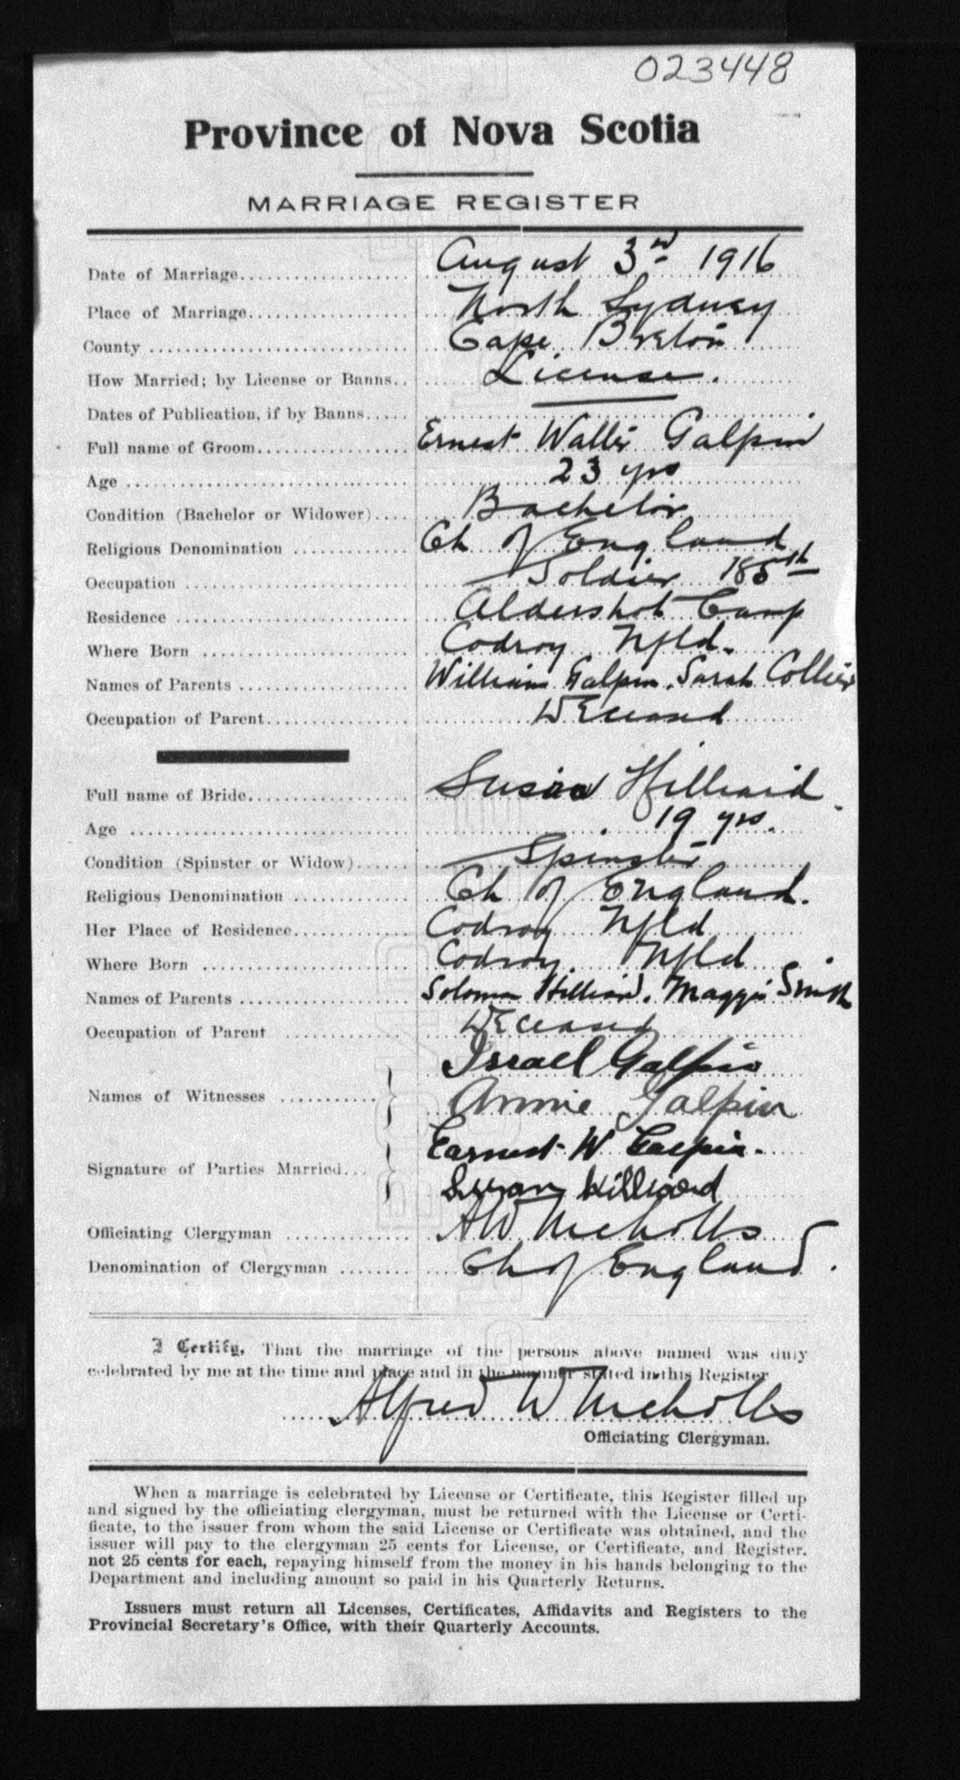 023448
Province of Nova Scotia
MARRIAGE REGISTER
Date of Marriage August 3rd 1916
Place of Marriage North Sydney
County Cape Breton
How Married; by License or Banns License.
Dates of Publication, if by Banns
Full name of Groom Ernest Walter Galpin
Age 23 yrs
Condition (Bachelor or Widower) Bachelor
Religious Denomination Ch of England
Occupation Soldier 185th
Residence Aldershot Camp
Where Born Codroy Nfld.
Names of Parents William Galpin. Sarah Collier
Occupation of Parent Deceased
Full name of Bride Susan Hilliard
Age 19 yrs.
Condition (Spinster or Widow) Spinster
Religious Denomination Ch of England.
Her Place of Residence Codroy Nfld
Where Born Codroy. Nfld
Names of Parents Solomon Hilliard. Maggie Smith
Occupation of Parent Deceased
Israel Galpin
Names of Witnesses
Annie Galpin
Earnest W Galpin.
Signature of Parties Married
Susan Hilliard
Officiating Clergyman AW Nicholls
Denomination of Clergyman Ch of England.
I Certify, That the marriage of the persons above named was duly
celebrated by me at the time and place and in the manner stated in this Register
Alfred W Nicholls
Officiating Clergyman.
When a marriage is celebrated by License or Certificate, this Register filled up
and signed by the officiating clergyman, must be returned with the License or Certi-
ficate, to the issuer from whom the said License or Certificate was obtained, and the
issuer will pay to the clergyman 25 cents for License, or Certificate, and Register.
not 25 cents for each, repaying himself from the money in his hands belonging to the
Department and including amount so paid in his Quarterly Returns.
Issuers must return all Licenses, Certificates, Affidavits and Registers to the
Provincial Secretary's Office, with their Quarterly Accounts.